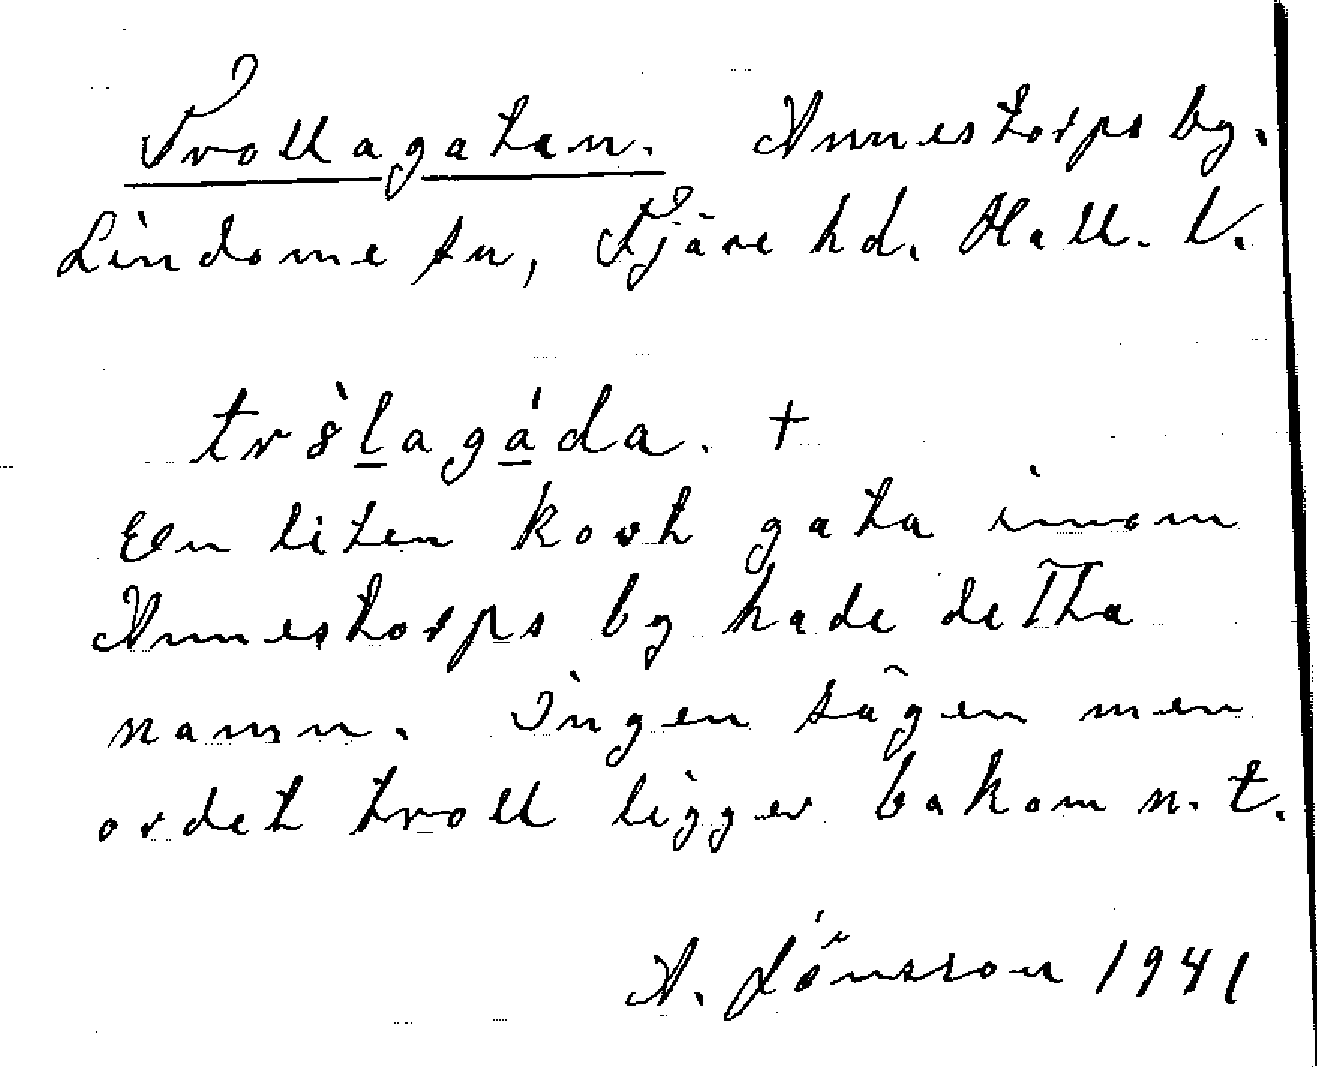 Trollagatan. Annestorps by.
Lindome sn, Fjäre hd. Hall. l.
+
En liten kort gata innom
Annestorps by hade detta
namn. Ingen sägen men
ordet troll ligger bakom n. t.
A. Jönsson 1941